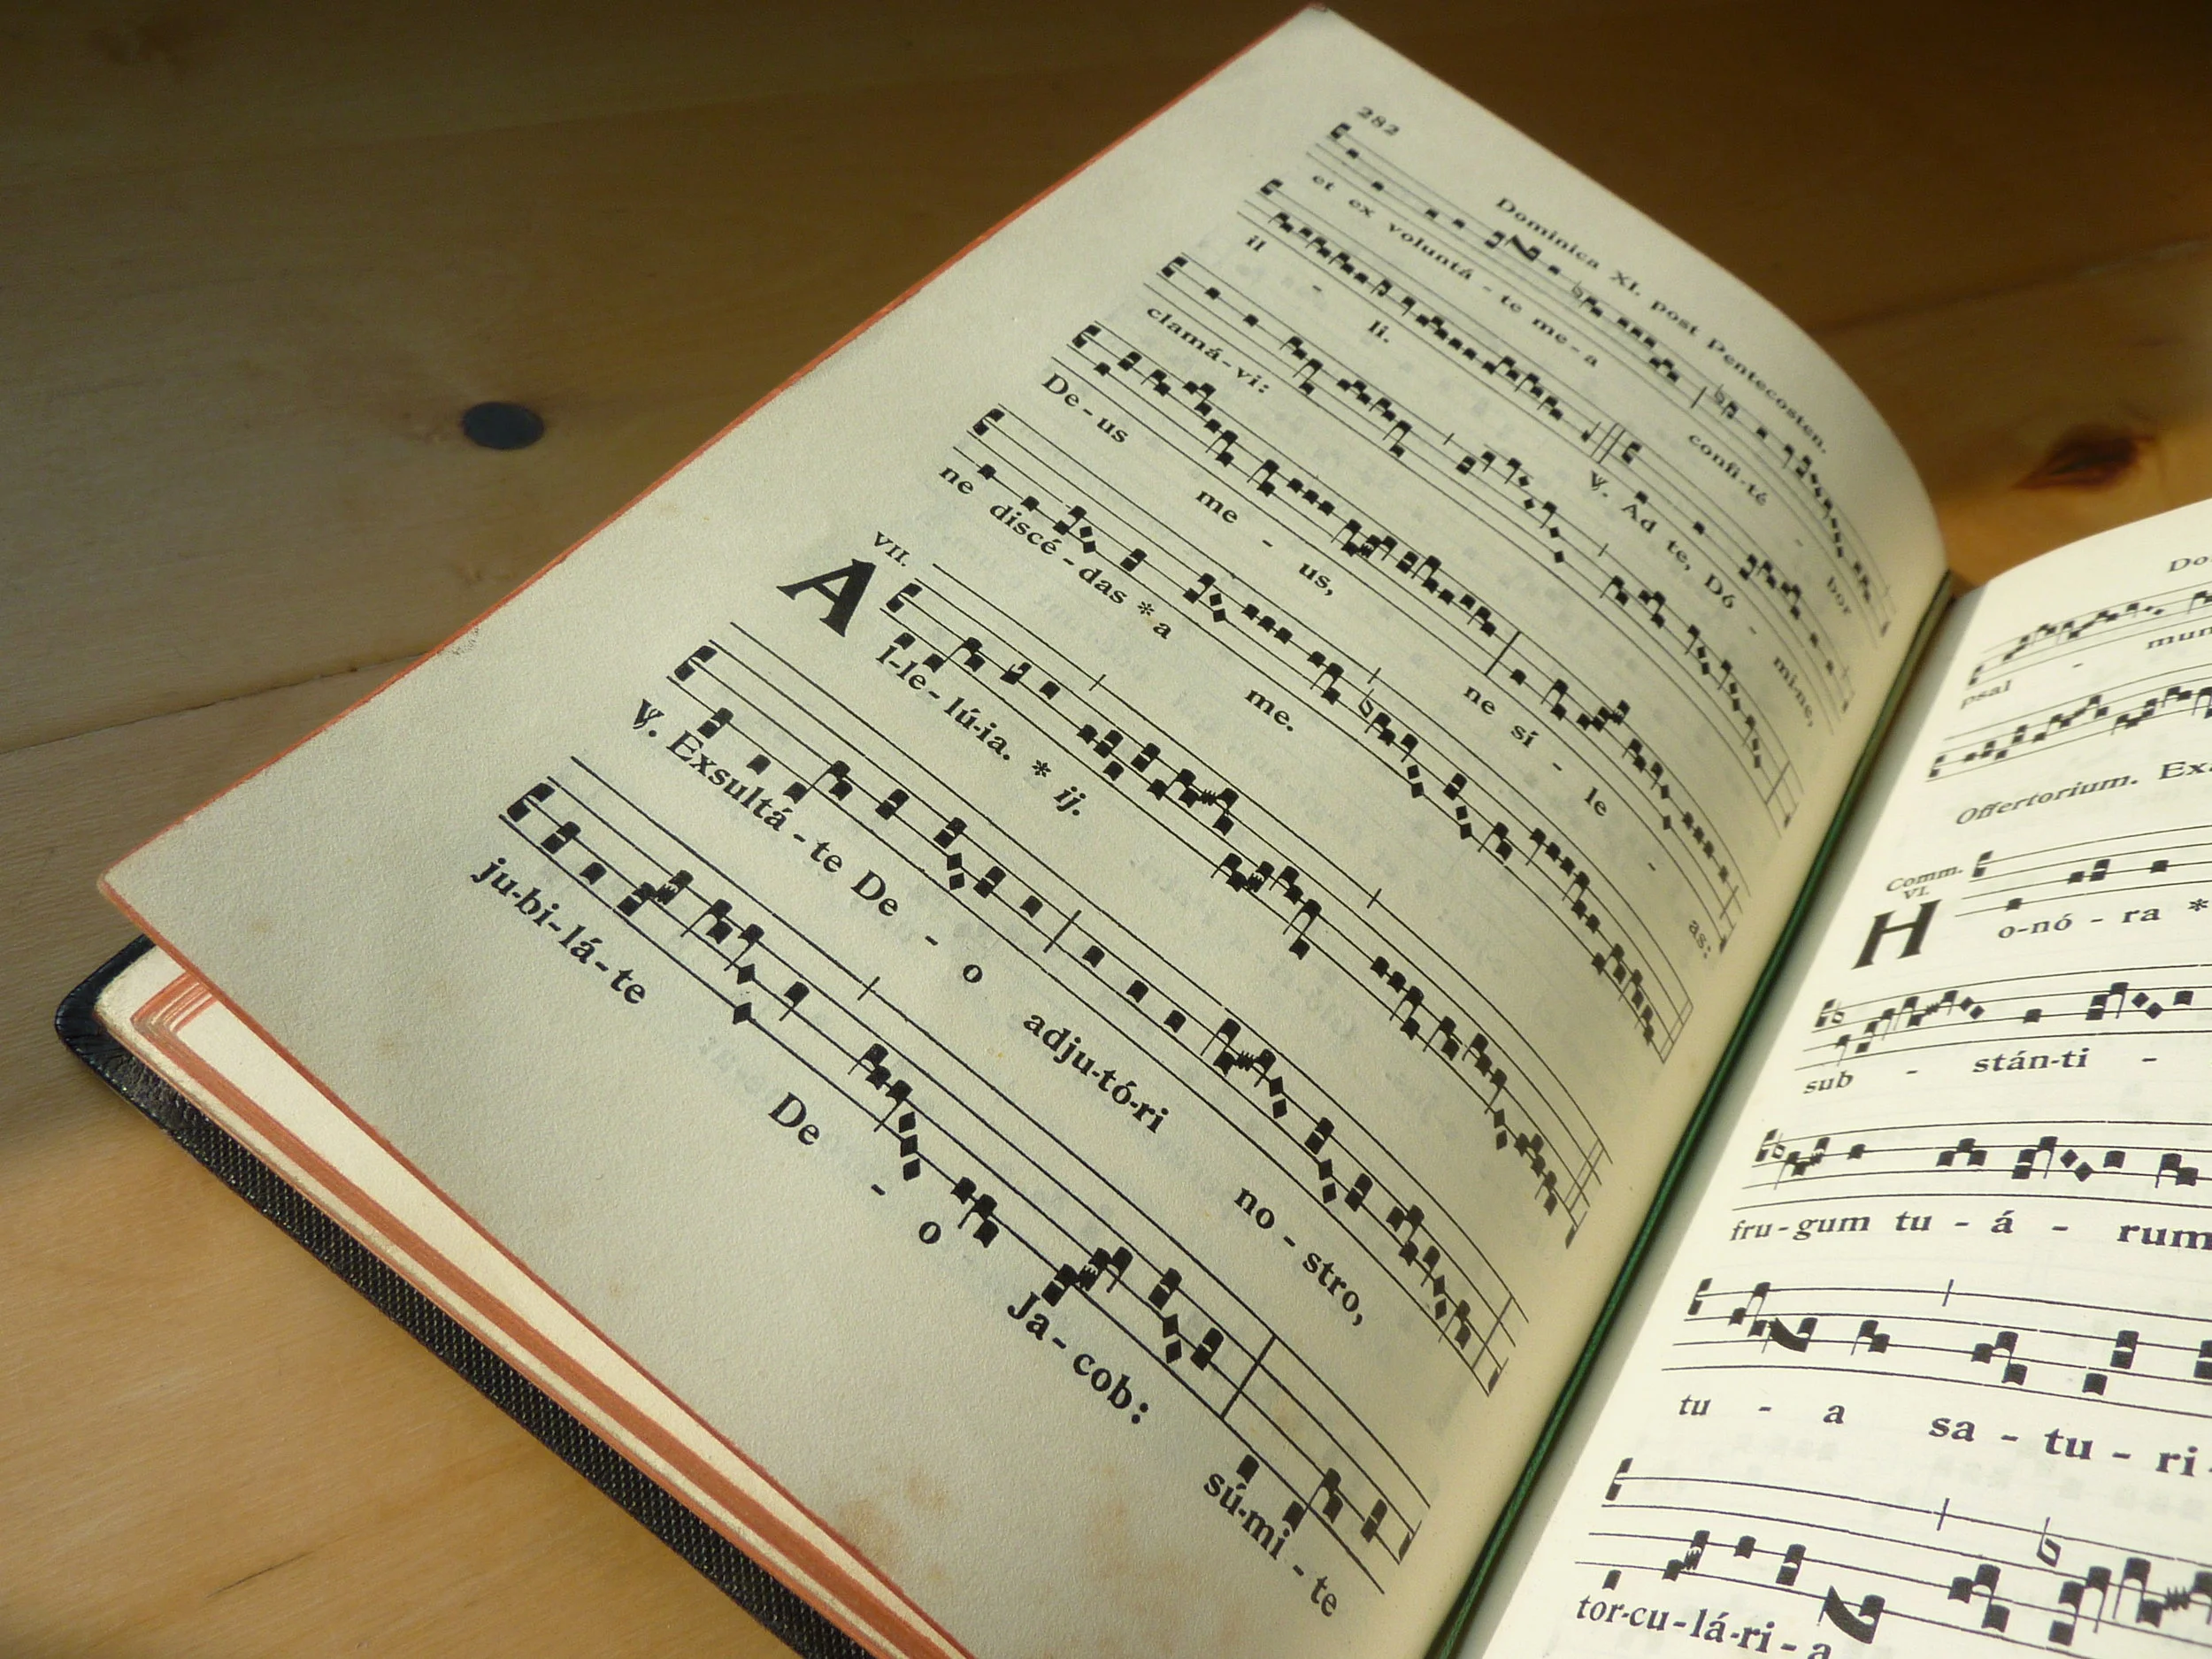 282
Dominica XI. post Pentecosten.
et ex voluntá - te me - a confi - té - bor
il - li. ℣. Ad te, Dó - mi - ne,
clamá - vi:
De - us me - us, ne sí - le - as:
ne discé - das * a me.
VII.
A l - le - lú - ia. * ij.
℣. Exsultá - te De - o adju - tó - ri no - stro,
ju - bi - lá - te De - o Ja - cob: sú - mi - te
psal - mum
Offertorium.
Comm.
VI.
H o - nó - ra *
sub - stán - ti -
fru - gum tu - á - rum
tu - a sa - tu - ri -
tor - cu - lá - ri - a